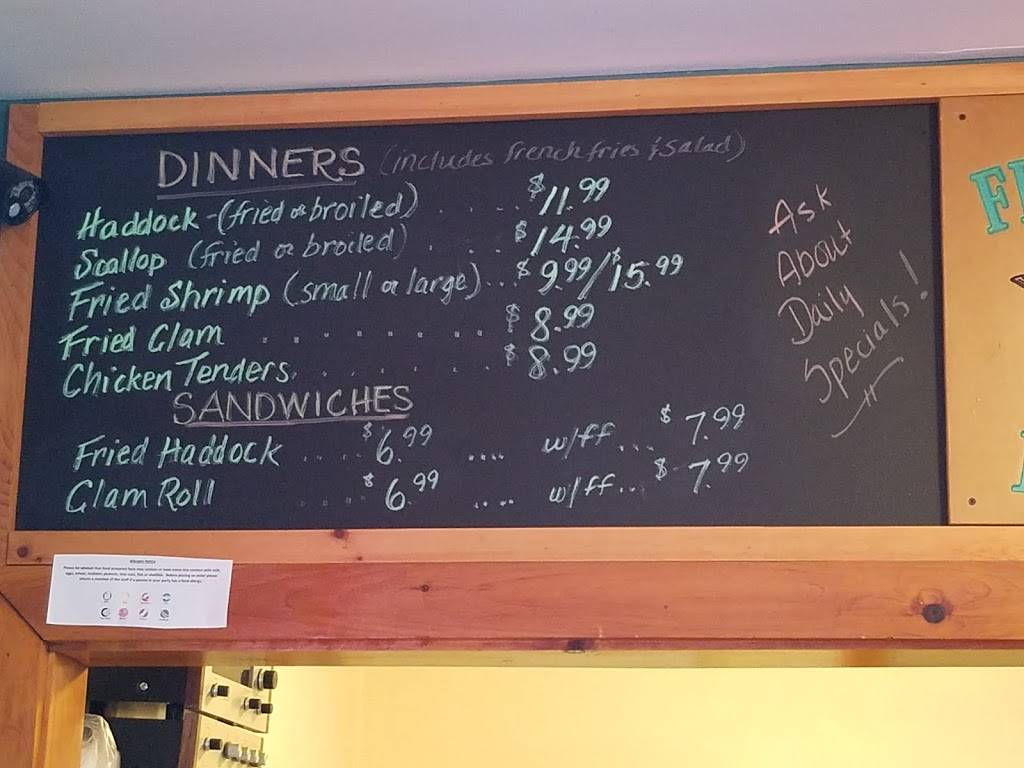 DINNERS (includes french fries & salad)
Haddock - (fried or broiled) . . . . . $11.99
Scallop (fried or broiled) . . . $14.99
Fried Shrimp (small or large) . . $9.99/$15.99
Fried Clam . . . . . . . . $8.99
Chicken Tenders. . . . . . . $8.99
SANDWICHES
Fried Haddock . . . . . $6.99 .... w/ff ... $7.99
Clam Roll . . . . . $6.99 .... w/ff ... $7.99
Ask
About
Daily
Specials!
Allergen Notice